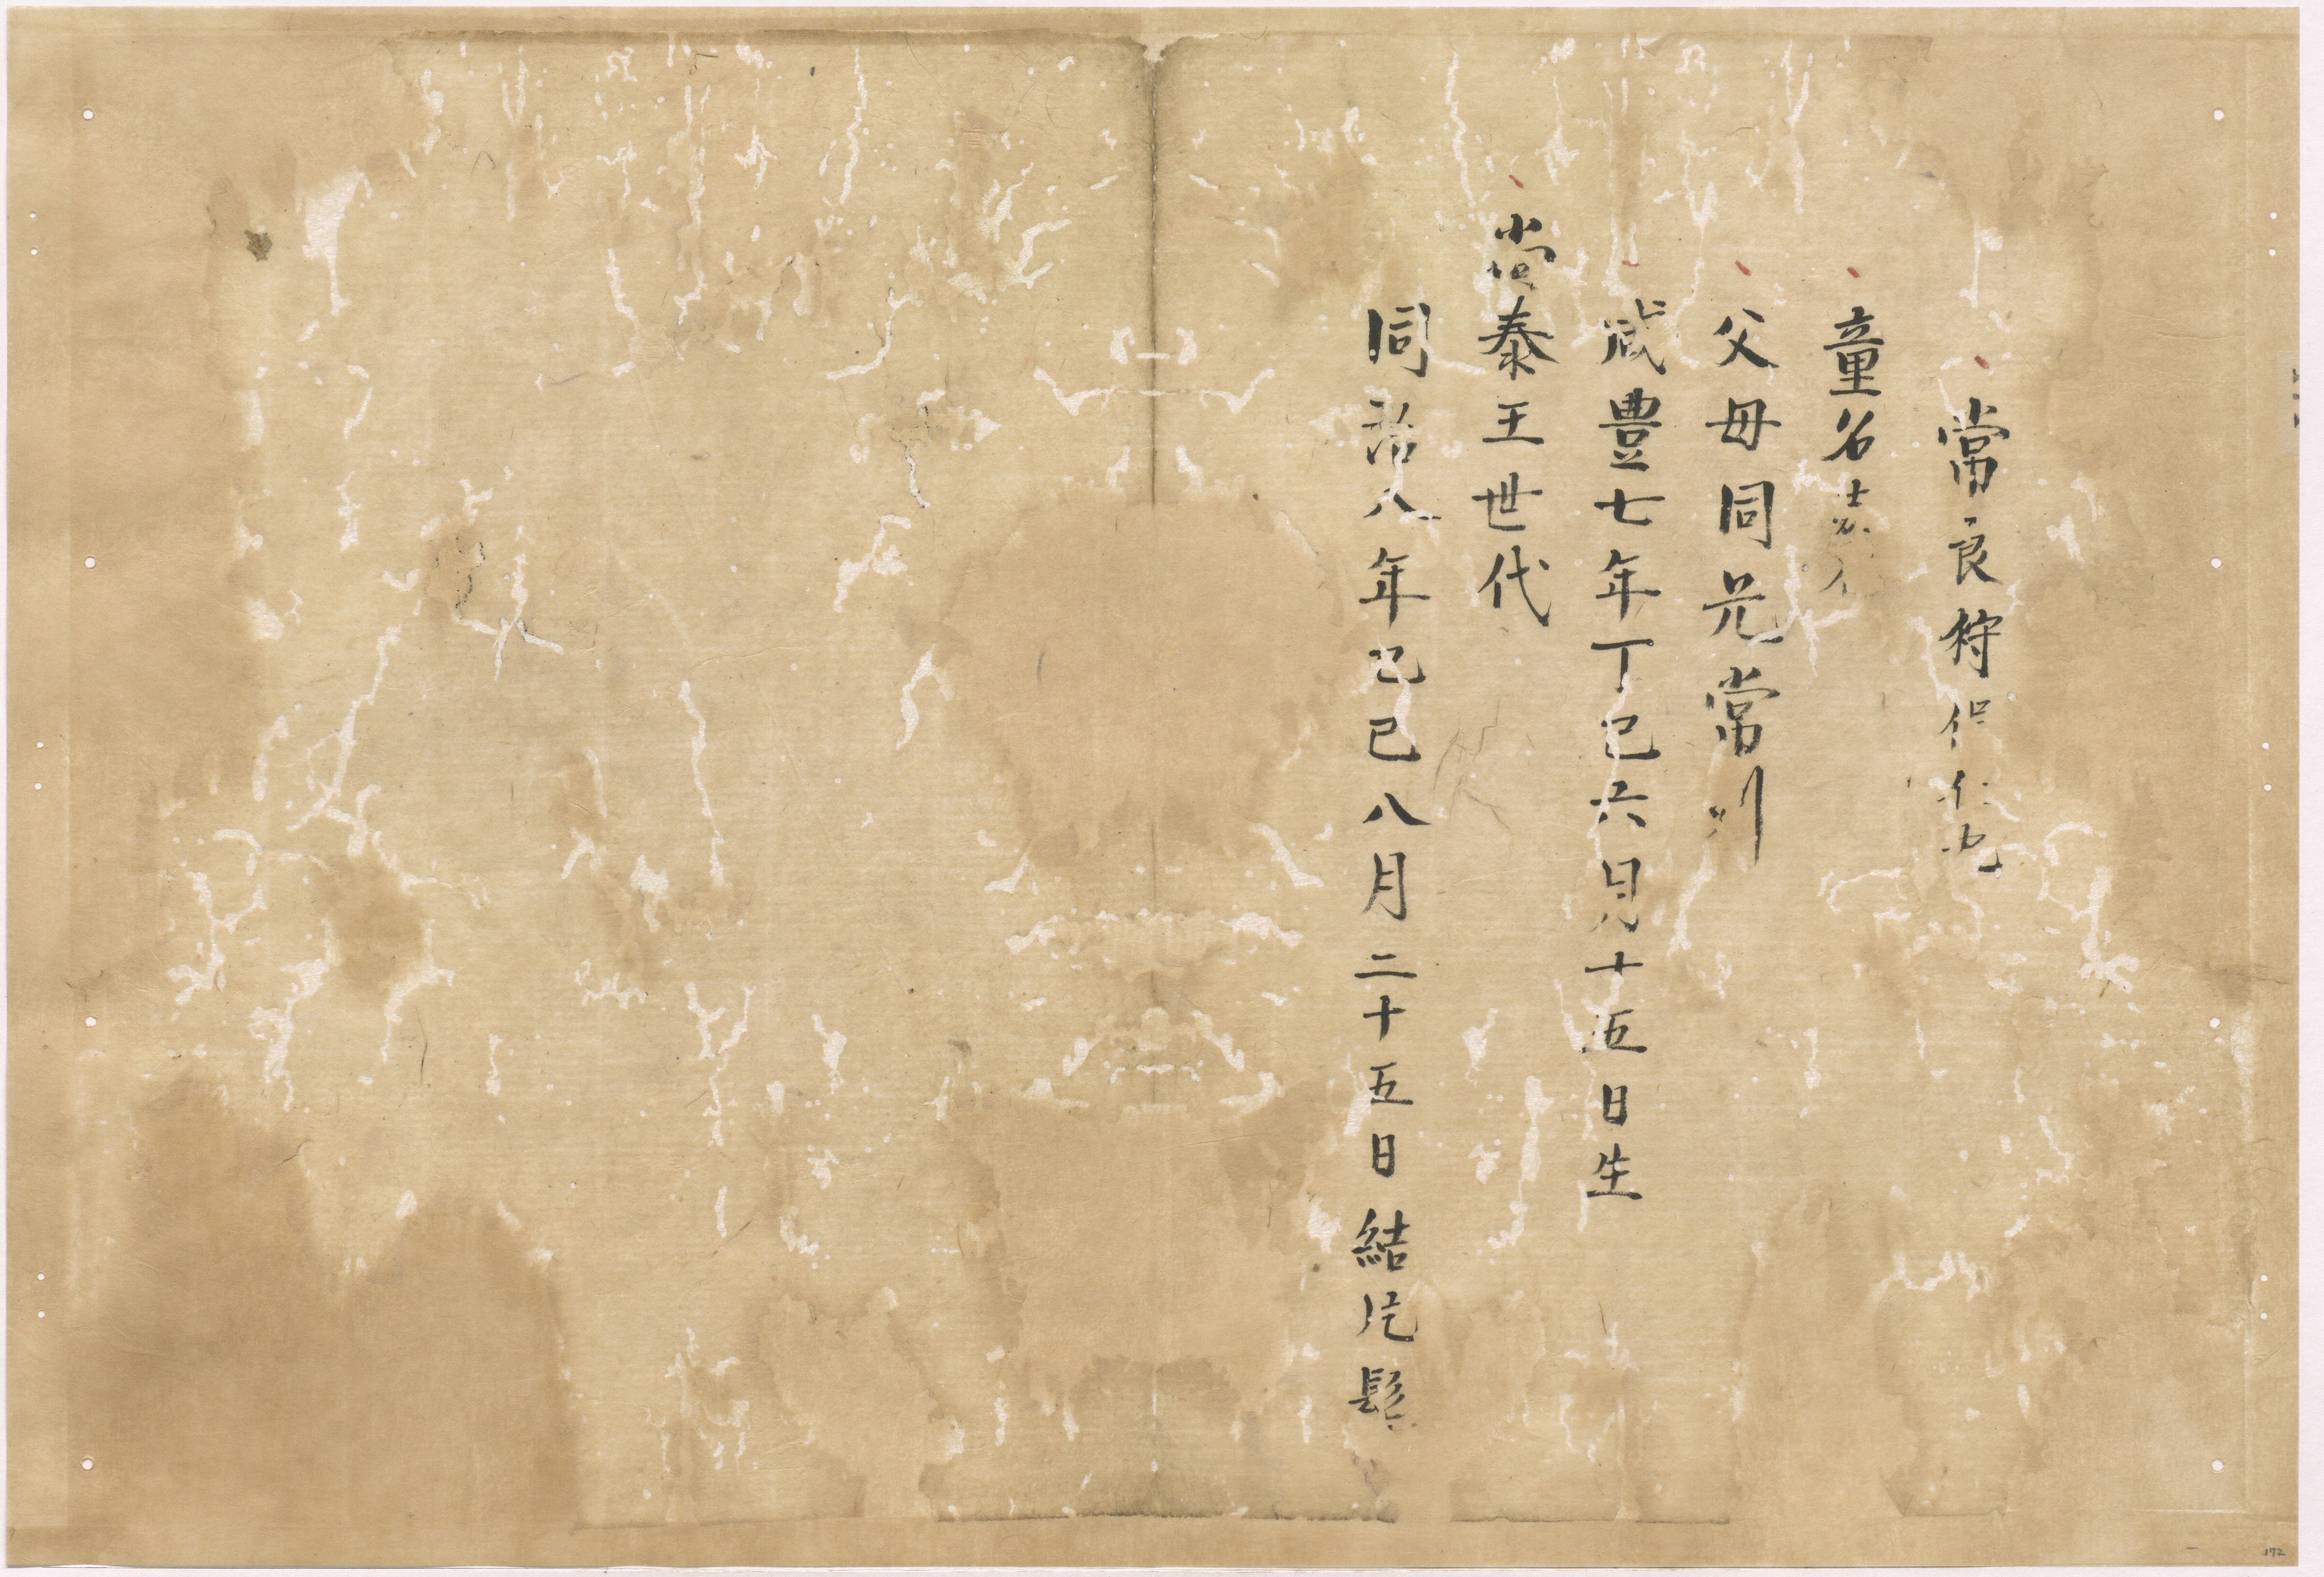 常良狩俣仁也
童名
父母同兄常川
咸豊七年丁巳六月十五日生
尚泰王世代
同治八年己巳八月二十五日結片髪
172